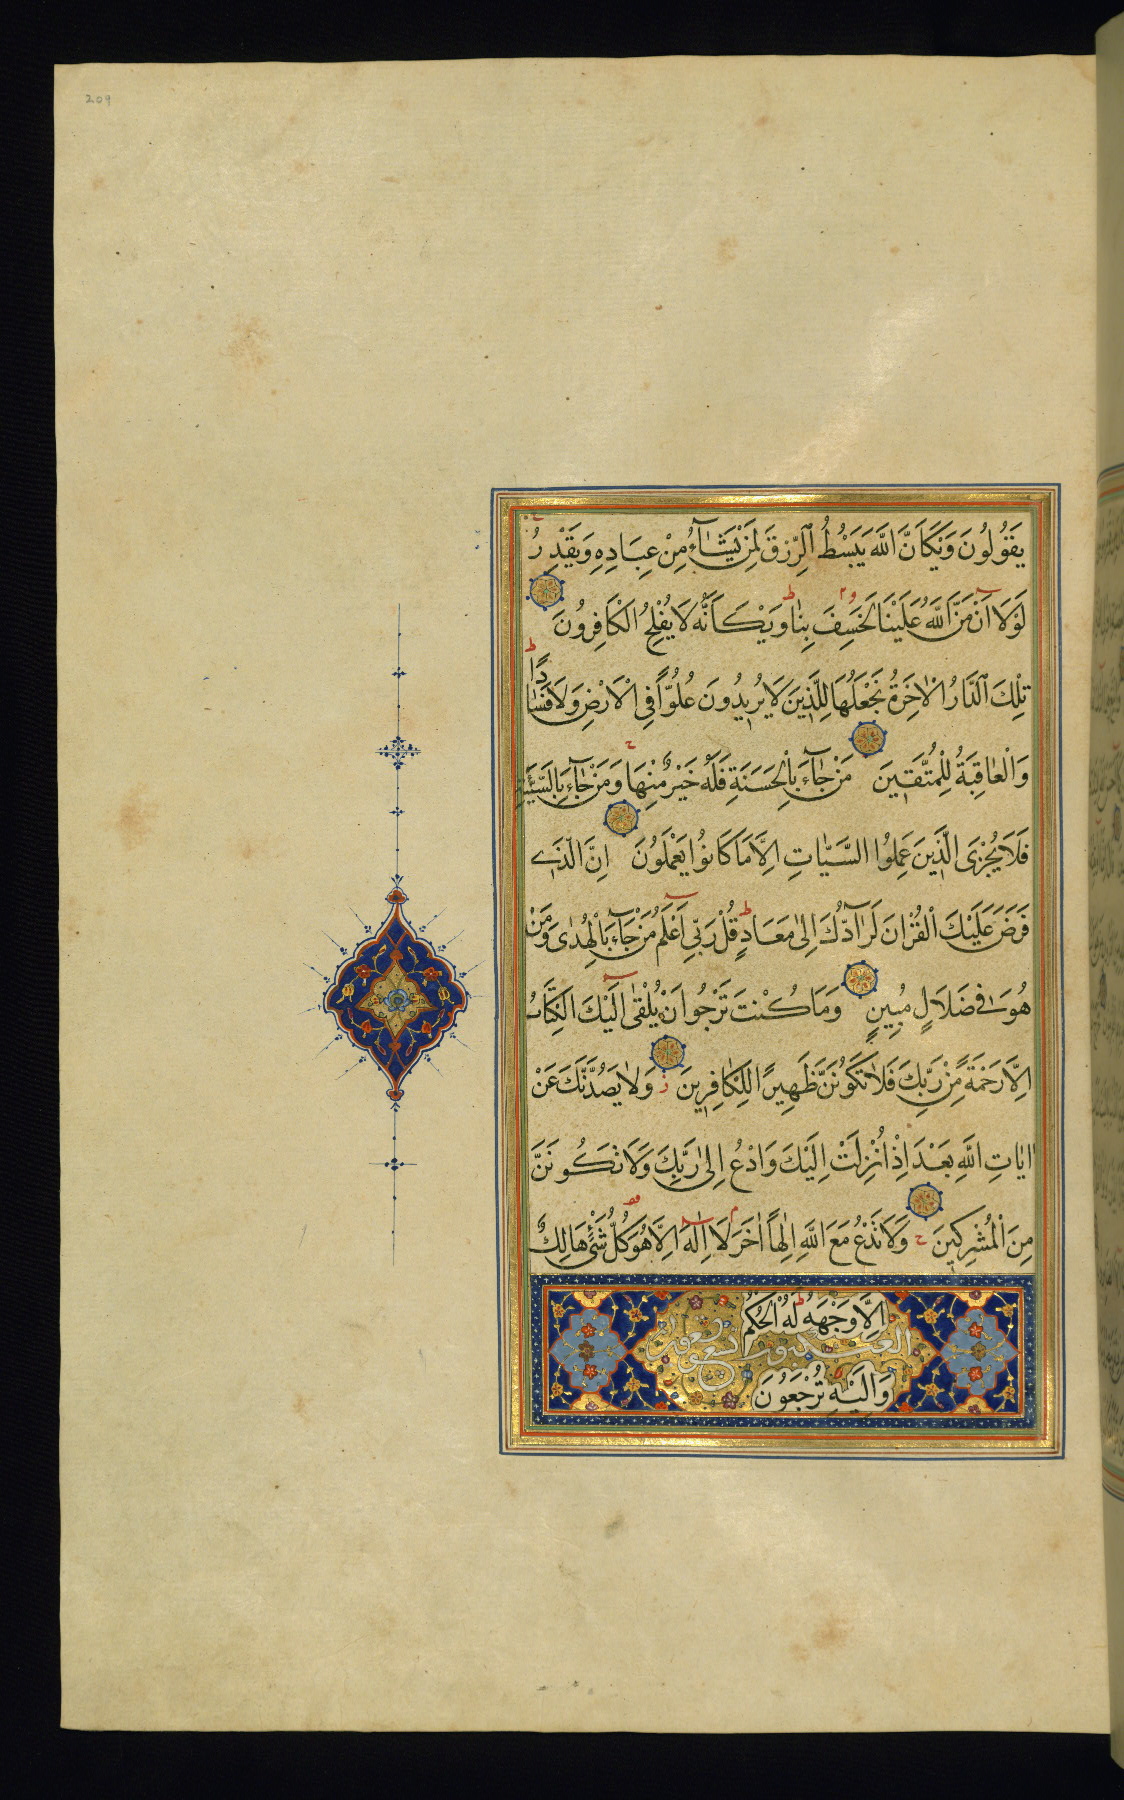 209
يَقُولُونَ وَيْكَاَنَّ اللَّهَ يَبْسُطُ الرِّزْقَ لِمَنْ يَشَآءُ مِنْ عِبَادِهِ وَيَقْدِرُ
لَوْلَا اَنْ مَنَّ اللَّهُ عَلَيْنَا لَخَسَفَ بِنَا وَيْكَاَنَّهُ لَا يُفْلِحُ الْكَافِرُونَ
تِلْكَ الدَّارُ الْاٰخِرَةُ نَجْعَلُهَا لِلَّذِينَ لَا يُرِيدُونَ عُلُوًّا فِي الْاَرْضِ وَلَا فَسَادًا
وَالْعَاقِبَةُ لِلْمُتَّقِينَ مَنْ جَآءَ بِالْحَسَنَةِ فَلَهُ خَيْرٌ مِنْهَا وَمَنْ جَآءَ بِالسَّيِّئَةِ
فَلَا يُجْزَى الَّذِينَ عَمِلُوا السَّيِّاٰتِ اِلَّا مَا كَانُوا يَعْمَلُونَ اِنَّ الَّذِي
فَرَضَ عَلَيْكَ الْقُرْاٰنَ لَرَآدُّكَ اِلٰى مَعَادٍ قُلْ رَبِّي اَعْلَمُ مَنْ جَآءَ بِالْهُدٰى وَمَنْ
هُوَ فِي ضَلَالٍ مُبِينٍ وَمَا كُنْتَ تَرْجُوا اَنْ يُلْقٰى اِلَيْكَ الْكِتَابُ
اِلَّا رَحْمَةً مِنْ رَبِّكَ فَلَا تَكُونَنَّ ظَهِيرًا لِلْكَافِرِينَ وَلَا يَصُدُّنَّكَ عَنْ
اٰيَاتِ اللَّهِ بَعْدَ اِذْ اُنْزِلَتْ اِلَيْكَ وَادْعُ اِلٰى رَبِّكَ وَلَا تَكُونَنَّ
مِنَ الْمُشْرِكِينَ وَلَا تَدْعُ مَعَ اللَّهِ اِلٰهًا اٰخَرَ لَا اِلٰهَ اِلَّا هُوَ كُلُّ شَيْءٍ هَالِكٌ
اِلَّا وَجْهَهُ لَهُ الْحُكْمُ
وَاِلَيْهِ تُرْجَعُونَ